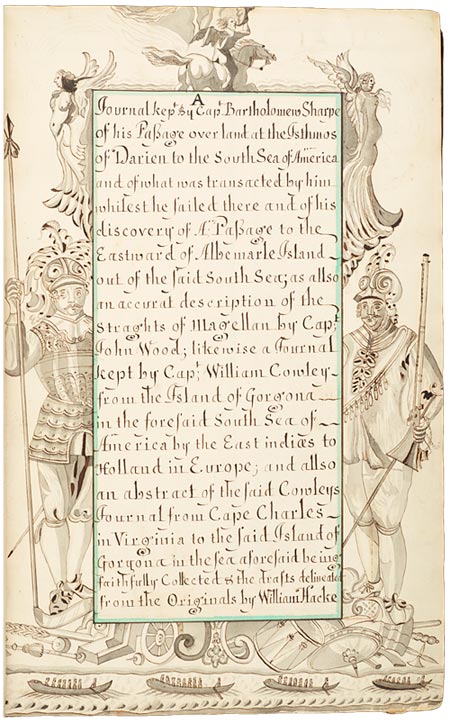 A
Journal kept by Capt Bartholomew Sharpe
of his Paßage over land at the Isthmos
of Darien to the South Sea of America
and of what was transacted by him
whilest he sailed there and of his
discovery of A Paßage to the
Eastward of Albemarle Island
out of the said South Sea; as also
an accurat description of the
Straghts of Magellan by Capt
John Wood; likewise a Journal
kept by Capt William Cowley
from the Island of Gorgona
in the foresaid South Sea of
America by the East indies to
Holland in Europe; and allso
an abstract of the said Cowleys
Journal from Cape Charles
in Virginia to the said Island of
Gorgona in the sea aforesaid being
faithfully Collected & the drafts delineated
from the Originals by William Hacke